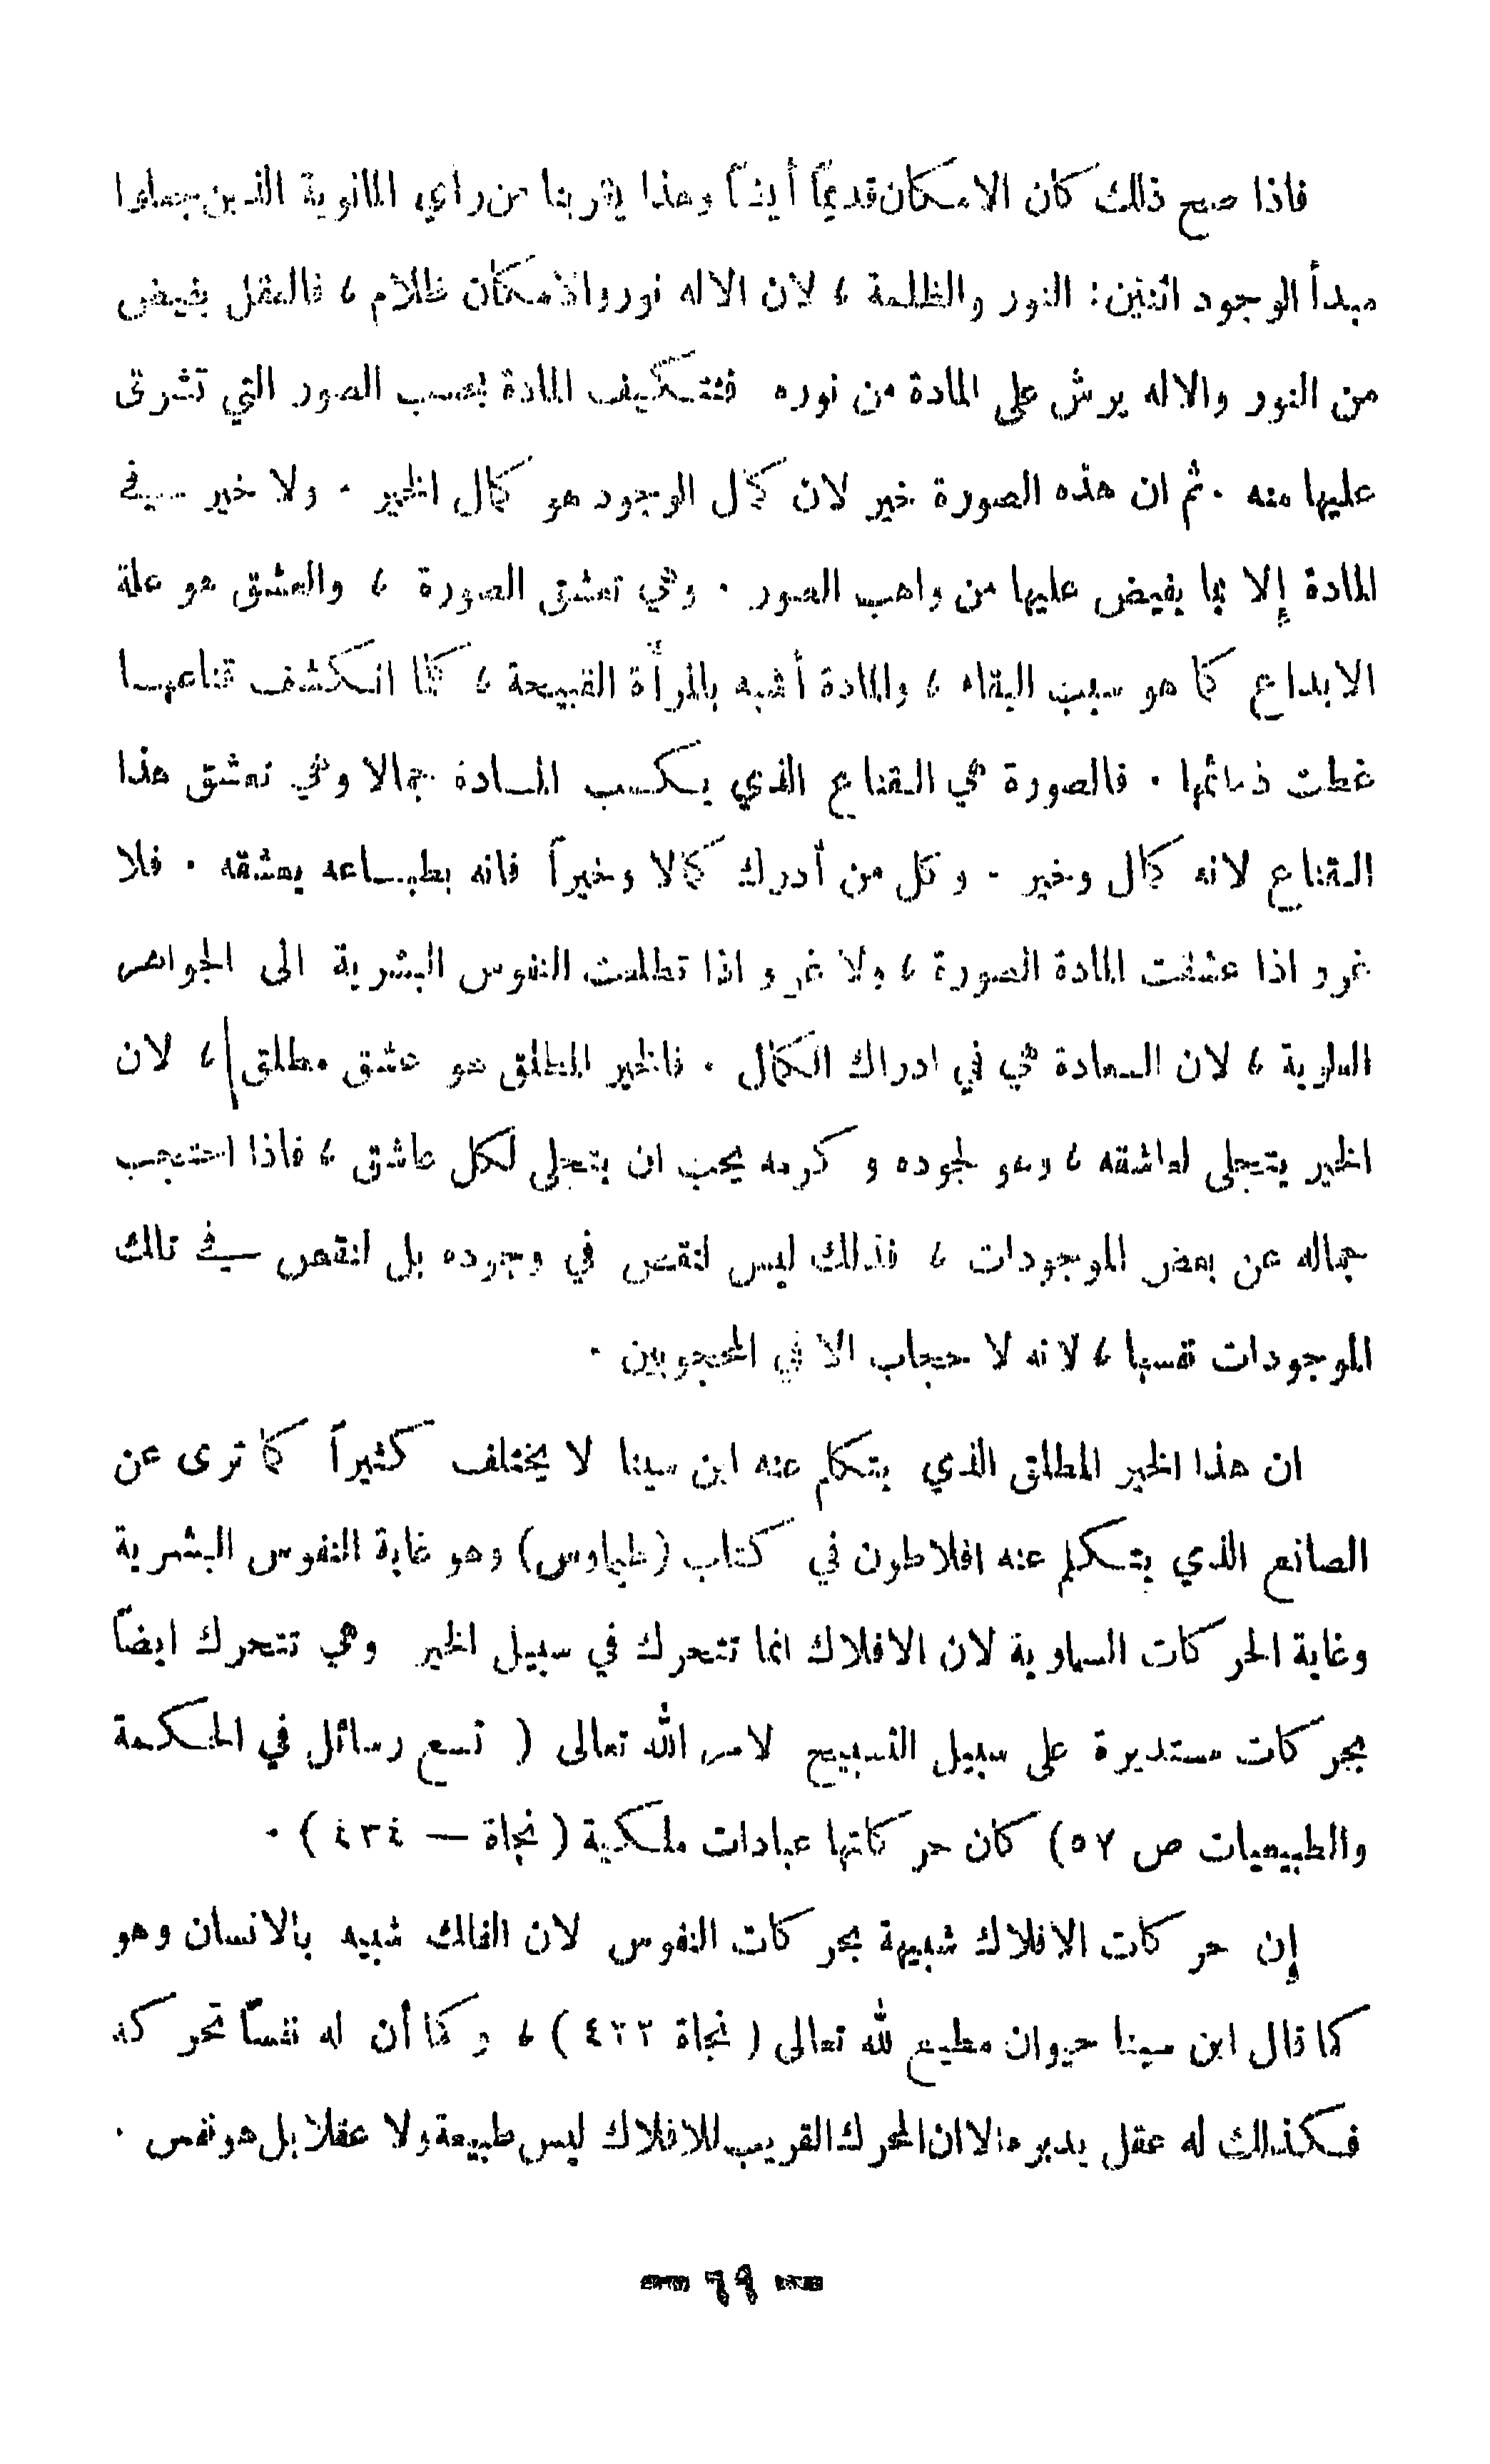 فاذا صح ذلك كان الامكان قديماً أيضاً وهذا يقربنا من رأي المانوية الذين جعلوا
مبدأ الوجود اثنين: النور والظلمة ، لان الاله نور والامكان ظلام ، فالعقل يفيض
من النور والاله يرش على المادة من نوره فتتكيف المادة بحسب الصور التي تشرق
عليها منه . ثم ان هذه الصورة خير لان كمال الوجود هو كمال الخير . ولا خير في
المادة إلا بما يفيض عليها من واهب الصور . وهي تعشق الصورة ، والعشق هو علة
الابداع كما هو سبب البقاء ، والمادة أشبه بالمرأة القبيحة ، كلما انكشف قناعها
غطت ذمائمها . فالصورة هي القناع الذي يكسب المادة جمالا وهي تعشق هذا
القناع لانه كمال وخير . وكل من أدرك كمالا وخيراً فانه بطباعه يعشقه . فلا
غرو اذا عشقت المادة الصورة ، ولا غرو اذا تطلعت النفوس البشرية الى الجواهر
العلوية ، لان السعادة هي في ادراك الكمال . فالخير المطلق هو عشق مطلق ، لان
الخير يتجلى لعاشقه ، وهو لجوده وكرمه يحب ان يتجلى لكل عاشق ، فاذا احتجب
جماله عن بعض الموجودات ، فذلك ليس لنقص في وجوده بل لنقص في تلك
الموجودات نفسها ، لانه لا حجاب الا في المحجوبين .
ان هذا الخير المطلق الذي يتكلم عنه ابن سينا لا يختلف كثيراً كما ترى عن
الصانع الذي يتكلم عنه افلاطون في كتاب (طيماوس) وهو غاية النفوس البشرية
وغاية الحركات السماوية لان الافلاك انما تتحرك في سبيل الخير وهي تتحرك ايضاً
بحركات مستديرة على سبيل التسبيح لامر الله تعالى ( تسع رسائل في الحكمة
والطبيعيات ص ٥٧) كان حركاتها عبادات ملكية ( نجاة — ٤٣٤ ) .
إن حركات الافلاك شبيهة بحركات النفوس لان الفلك شبيه بالانسان وهو
كما قال ابن سينا حيوان مطيع لله تعالى ( نجاة ٤٢٣ ) ، وكما أن له نفساً تحركه
فكذلك له عقل يدبره الا ان المحرك القريب للافلاك ليس طبيعة ولا عقلا بل هو نفس .
— ٦٩ —